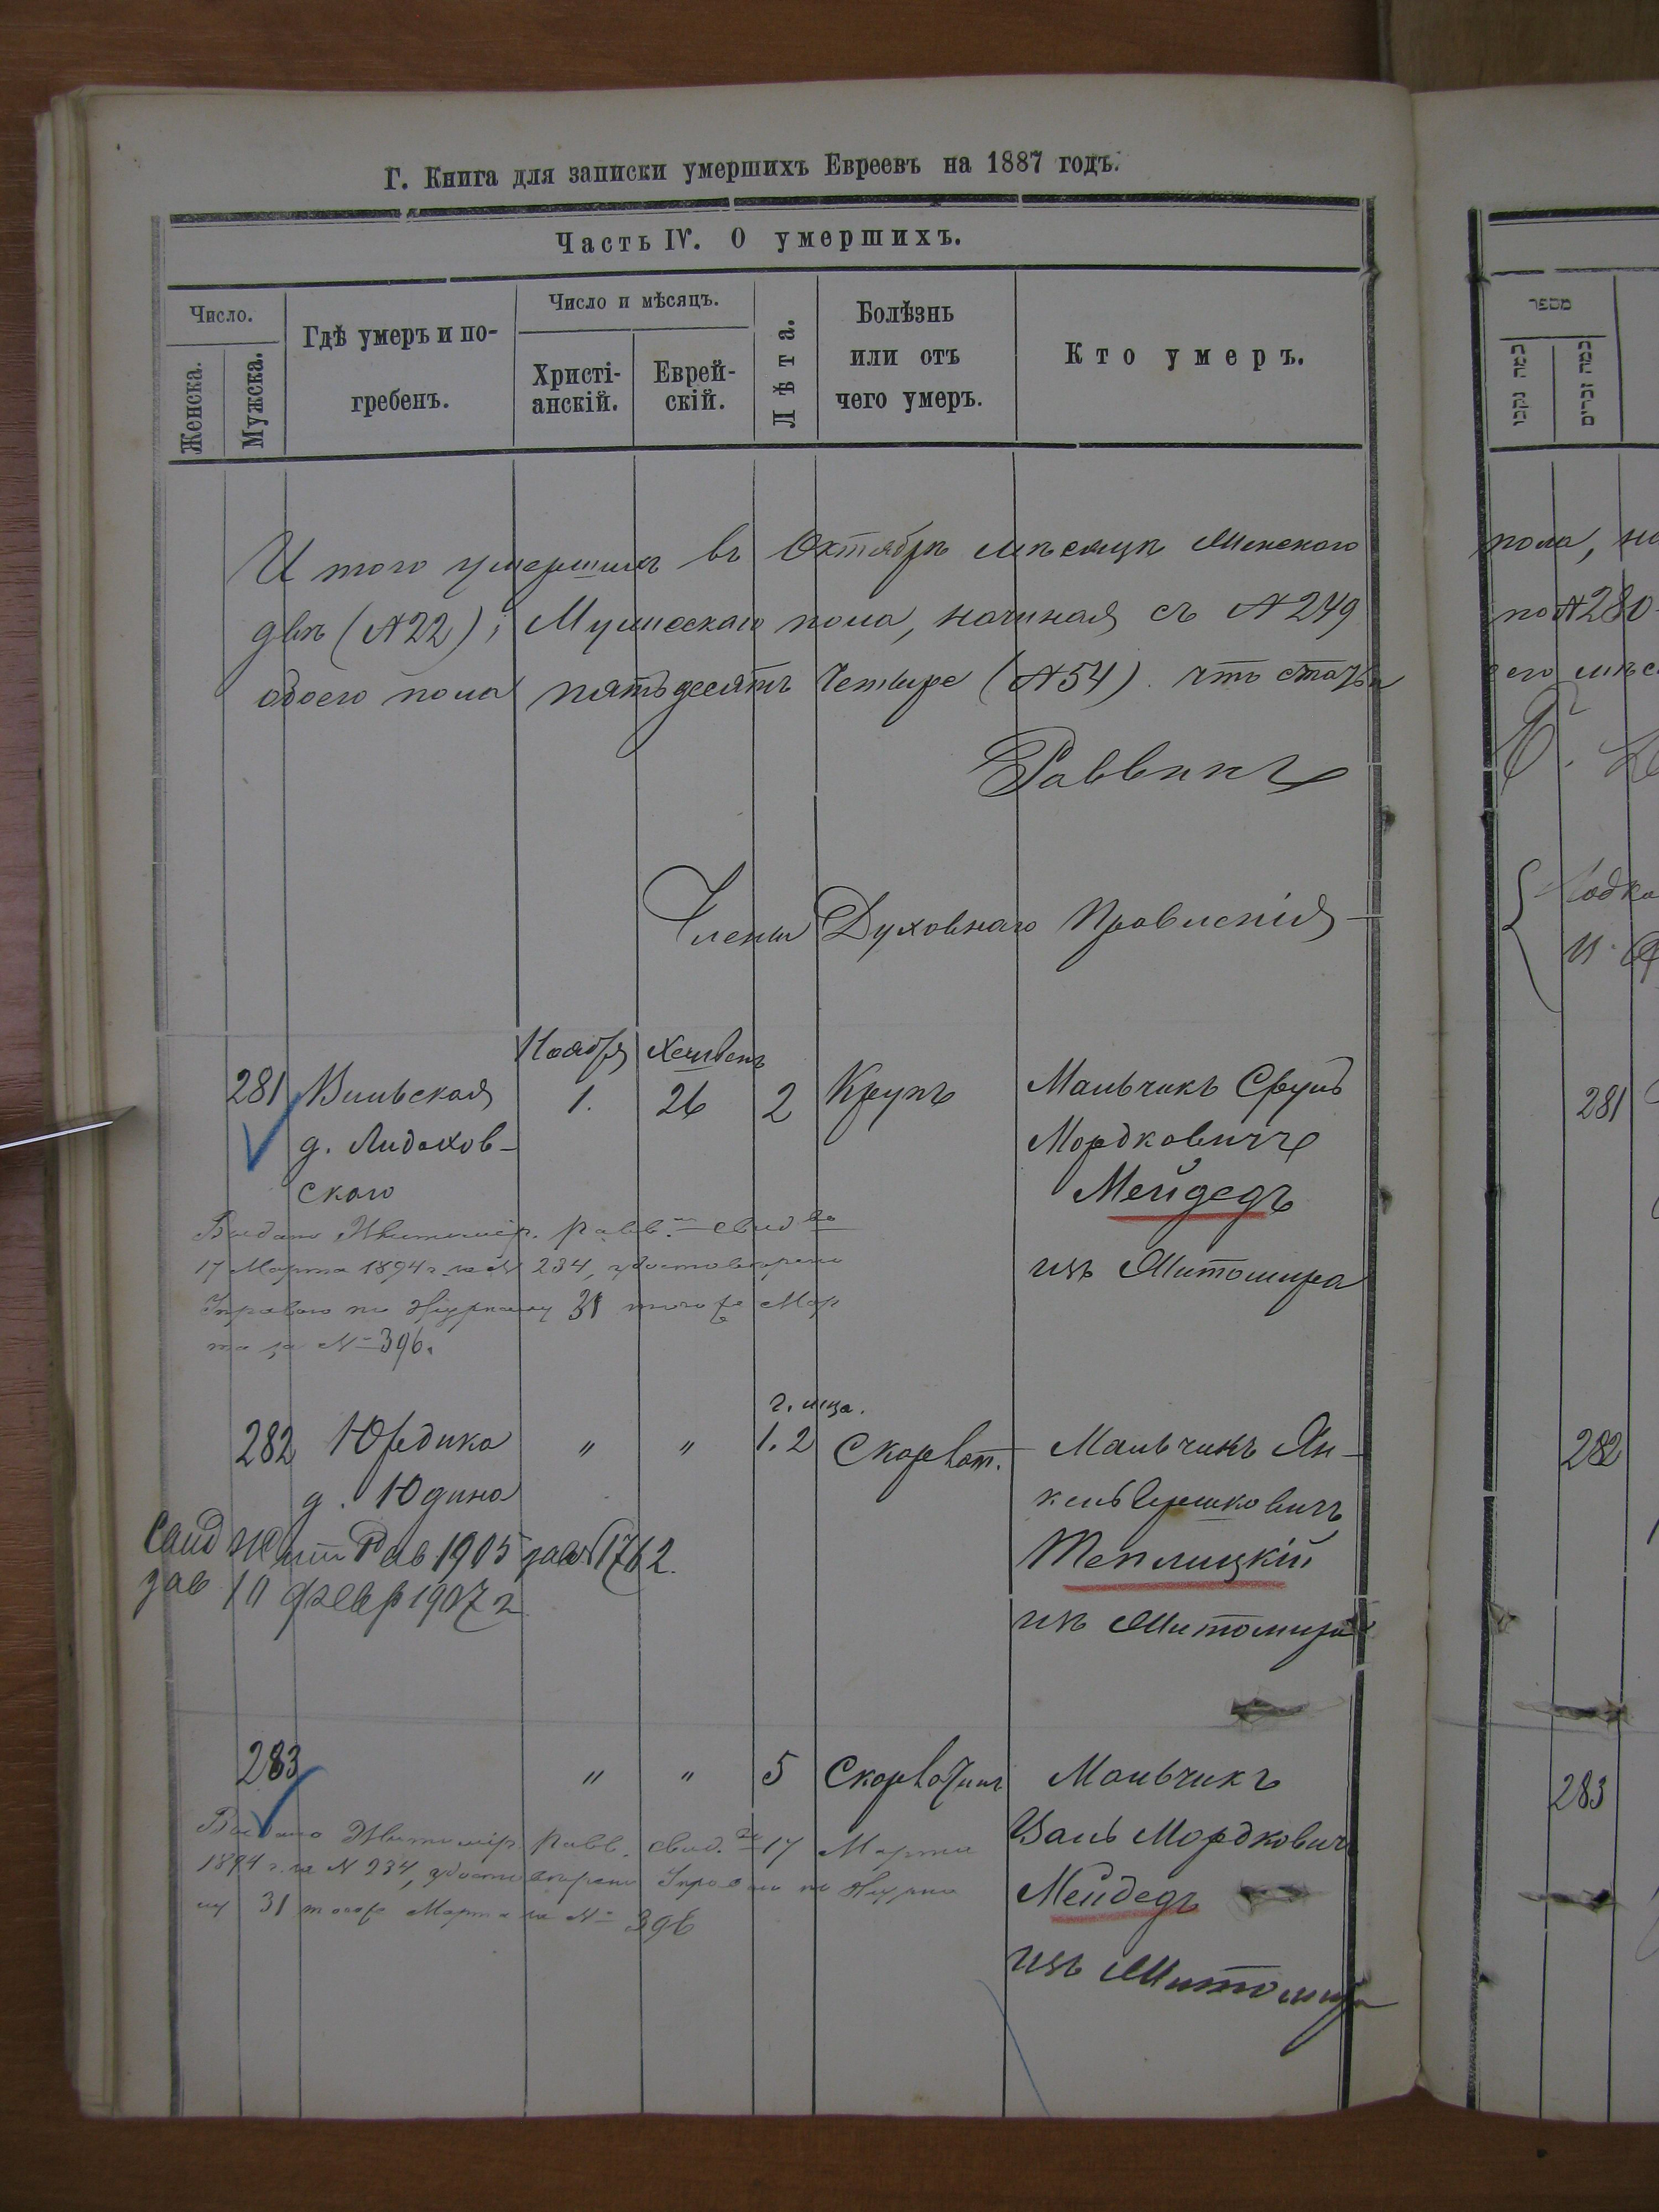 Г. Книга для записки умершихъ Евреевъ на 1887 годъ.
Часть IV. О умершихъ.
Число.
Женска.
Мужска.
Гдѣ умеръ и по-
гребенъ.
Число и мѣсяцъ.
Христі-
анскій.
Еврей-
скій.
Лѣта.
Болѣзнь
или отъ
чего умеръ.
Кто умеръ.
И того умершихъ въ Октябрѣ мѣсяцѣ Женского
двѣ (№22); Мужескаго пола, начиная съ №249
обоего пола пятьдесятъ Четыре (№54). что статьи
Раввинъ
Члены Духовнаго Правленія
Ноября Хешвенъ
281 Вильская 1. 26 2 Крупъ Мальчикъ Сруль
д.
скаго
Мордковичъ
Мейдедъ
изъ Житомира
Выдано Житомір. равв. свид во
17 Марта 1894 г. за № 234, удостоверено
Управою по Журналу 31 того же Мар
та за № 396.
г. мца.
282 Юрдика " " 1.2 Скарлат. Мальчикъ Ян-
д. Юдина
кель Гершковичъ
Теплицкій
изъ Житомира
Свид Жит Рав 1905 за №1762.
зав 10 февр 1907 г
283 " " 5 Скарлатина Мальчикъ
Мордковичъ
Мейдедъ
изъ Житомира
Выдано Житомір. равв. свид. 17 Марта
1894 г. за № 234, удостоверено Управою по Журна
лу 31 того же Марта за № 396
מספר
כמה נקבו
כמה זכרים
пола,
по №280
его
281
282
283